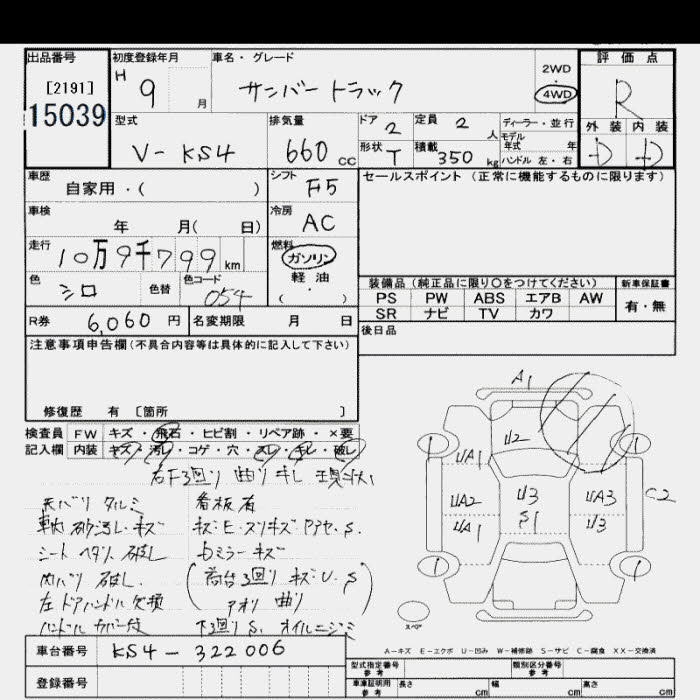 出品番号 初度登録年月 車名・グレード 2WD 評価点
[2191] H 9 月 サンバー トラック 4WD R
15039 外装 内装
型式 排気量 ドア 2 定員 2 人 ディーラー・並行 D D
V-KS4 660 CC 形状 T 積載 350 kg モデル年式 年
ハンドル 左・右
車歴 自家用・( ) シフト F5 セールスポイント (正常に機能するものに限ります)
車検 年 月( 日) 冷房 AC
走行 10万9千799 km 燃料 ガソリン
軽油・( )
色 シロ 色替 色コード 054 装備品 (純正品に限り〇をつけてください) 新車保証書
PS PW ABS エアB AW 有・無
R券 6,060 円 名変期限 月 日 SR ナビ TV カワ
注意事項申告欄 (不具合内容等は具体的に記入して下さい) 後日品
修復歴 有 〔箇所 〕
検査員 FW キズ・飛石・ヒビ割・リペア跡・×要
記入欄 内装 キズ・汚レ・コゲ・穴・スレ・キレ・破レ
右下3回り 曲り キレ 現状
天バリ タルミ 看板有
車内 砂汚レ・キズ キズ・E・スリキズ アアセ・S.
シート ヘタリ 破レ 右ミラーキズ
内バリ 破レ. (荷台3回り キズ・U. S
左ドアハンドル欠損 アオリ 曲り)
ハンドルカバー付 下3回り S. オイルニジミ
A1
U2
UA1
1 1
UA2 U3 UA3 C2
UA1 S1 U3
1 1
スペア
A-キズ E-エクボ U-凹み W-補修跡 S-サビ C-腐食 XX-交換済
車台番号 KS4-322006
型式指定番号 参考 類別区分番号 参考
登録番号 車庫証明用 参考 長さ cm 幅 cm 高さ cm